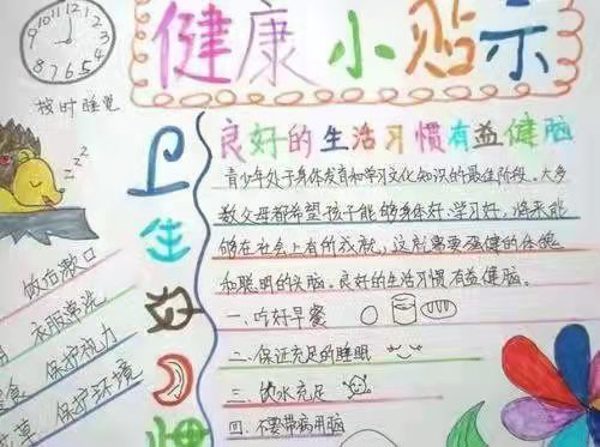 健康小贴示
10 11 12 1 2 3 4 5 6 7 8 9
按时睡觉
zzz
卫生好习
良好的生活习惯有益健脑
青少年处于身体发育和学习文化知识的最佳阶段。大多
数父母都希望孩子能够身体好、学习好,将来能
够在社会上有所成就,这就需要强健的体魄
和聪明的头脑。良好的生活习惯有益健脑。
一、吃好早餐
二、保证充足的睡眠
三、饮水充足
四、不要带病用脑
饭后漱口
衣服常洗
食 保护视力
草 保护环境